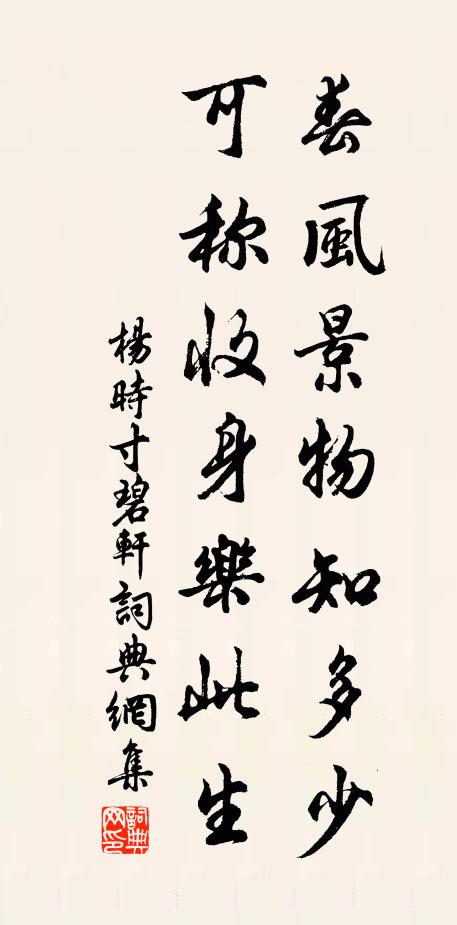 春風景物知多少
可称收身樂此生
楊時寸碧軒詞典網集
詞典网印